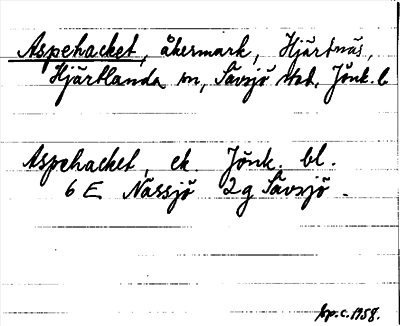 Aspehacket, åkermark, Hjärtnäs,
Hjärtlanda sn, Sävsjö stad, Jönk. l.
Aspehacket, ek. Jönk. bl.
6 E Nässjö 2g Sävsjö.
hp.c.1958.